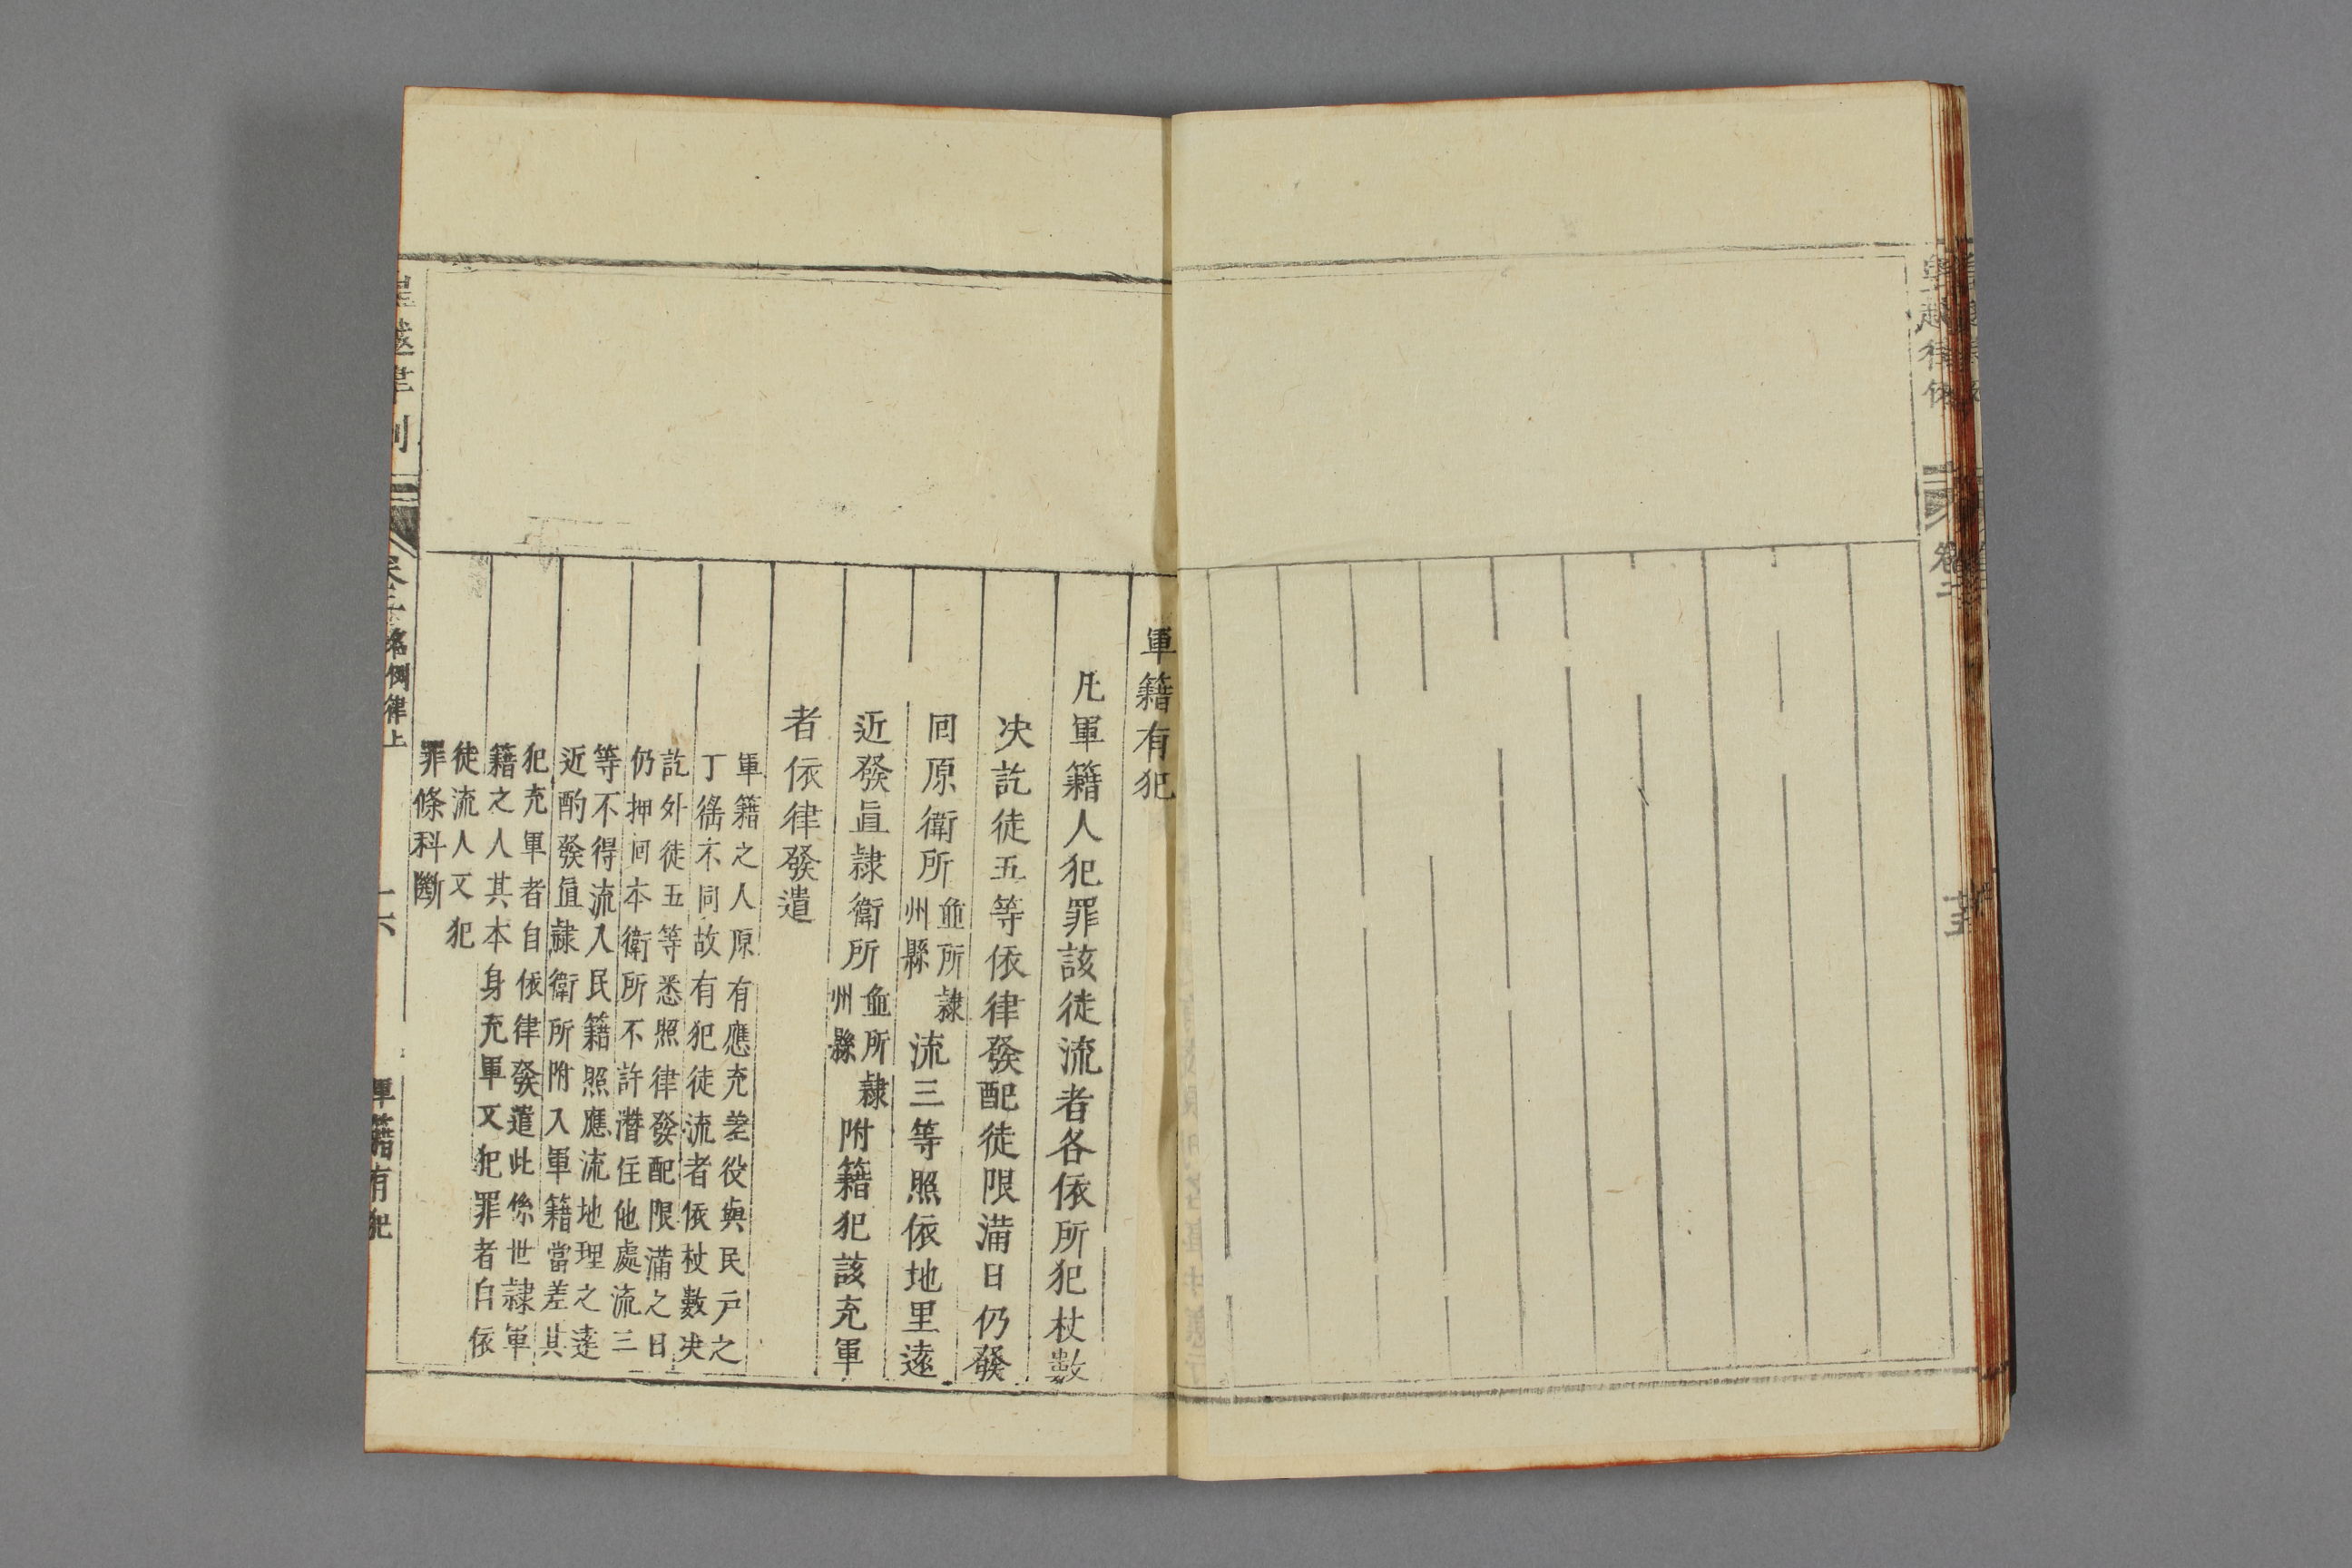 軍籍有犯
凡軍籍人犯罪該徒流者各依所犯杖數
决訖徒五等依律發配徒限滿日仍發
囘原衛所並所隷州縣流三等照依地里遠
近發直隷衛所並所隷州縣附籍犯該充軍
者依律發遣
軍籍之人原有應充差役與民戸之
丁徭不同故有犯徒流者依杖數决
訖外徒五等悉照律發配限滿之日
仍押囘本衛所不許潛住他處流三
等不得流入民籍照應流地理之遠
近酌發直隷衛所附入軍籍當差其
犯充軍者自依律發遣此係世隷軍
籍之人其本身充軍又犯罪者自依
徒流人又犯
罪條科斷
皇越律例
卷二 名例律上
十六
軍籍有犯